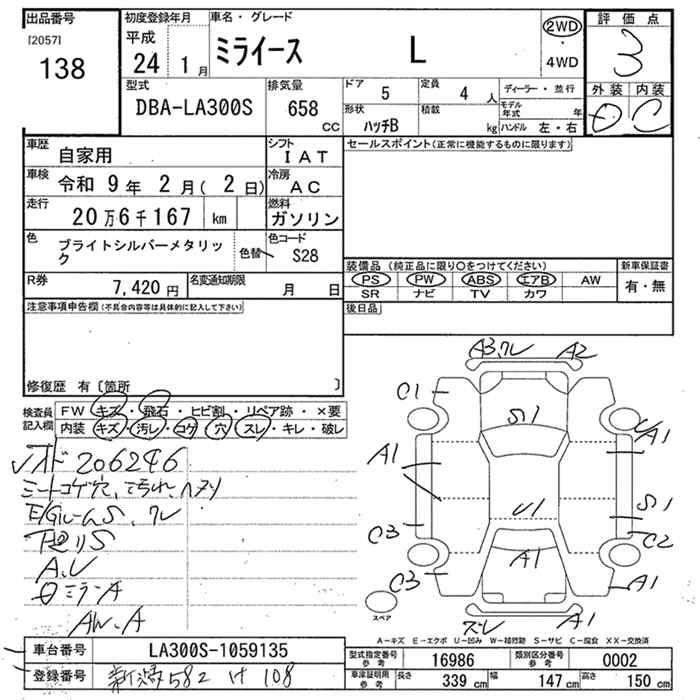 出品番号
[2057]
138
初度登録年月
平成
24 1月
車名・グレード
ミライース L
2WD
・
4WD
評価点
3
外装 内装
C
型式
DBA-LA300S
排気量
658
CC
ドア
5
定員
4人
形状
ハッチB
積載
kg
ディーラー・並行
モデル年式 年
ハンドル 左・右
車歴
自家用
シフト
IAT
車検
令和 9年 2月( 2日)
冷房
AC
走行
20万6千167 km
燃料
ガソリン
色
ブライトシルバーメタリック
色替
色コード
S28
R券
7,420円
名変通知期限
月 日
セールスポイント(正常に機能するものに限ります)
装備品 (純正品に限り○をつけてください)
PS PW ABS エアB AW
SR ナビ TV カワ
新車保証書
有・無
後日品
注意事項申告欄(不具合内容等は具体的に記入して下さい)
修復歴 有〔箇所 〕
検査員記入欄
FW キズ・飛石・ヒビ割・リペア跡・×要
内装 キズ・汚レ・コゲ・穴・スレ・キレ・破レ
206246
シートコゲ穴、
E/GルームS、クレ
下廻りS
A.U
ミラーA
AW.A
A3.クレ A2
C1
S1
A1
A1
U1
S1
C3
C2
A1
C3
A1
A1
スペア
A−キズ E−エクボ U−凹み W−補修跡 S−サビ C−腐食 XX−交換済
車台番号
LA300S-1059135
登録番号
新潟582 け 108
型式指定番号
参考
16986
類別区分番号
参考
0002
車庫証明用
参考
長さ
339 cm
幅
147 cm
高さ
150 cm